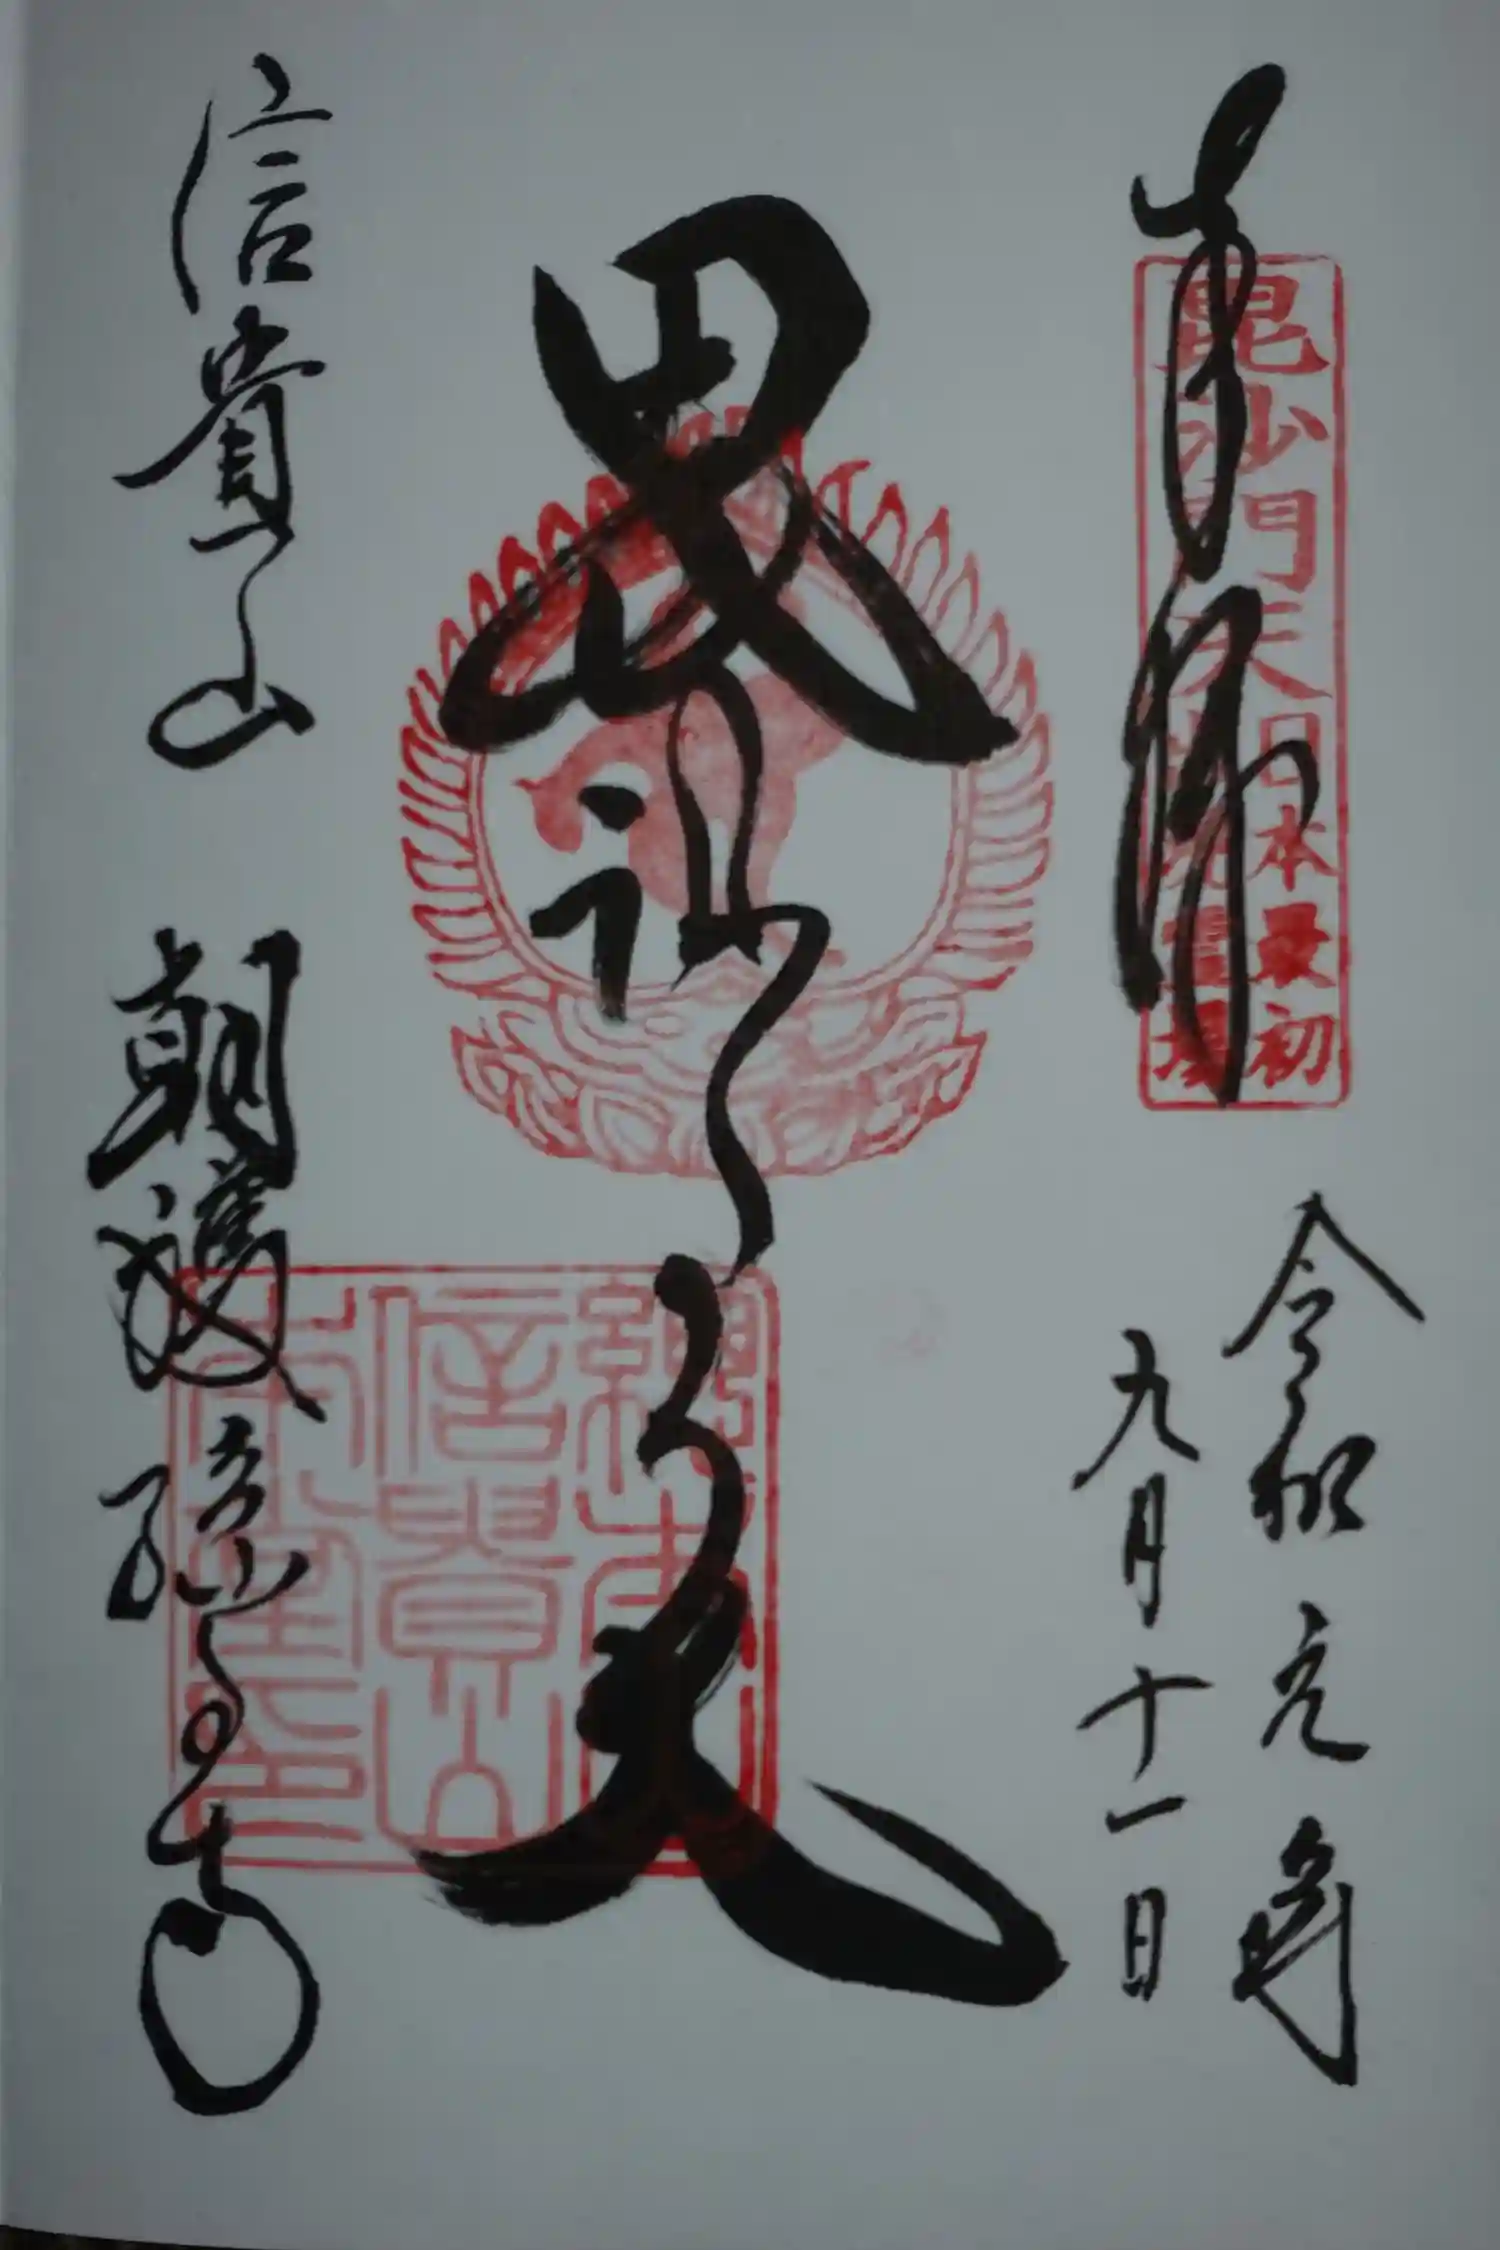 奉拝
毘沙門天王
日本最初
出現霊場
令和元年
九月十一日
毘沙門天
信貴山
朝護孫子寺
総本山
信貴山
本堂印